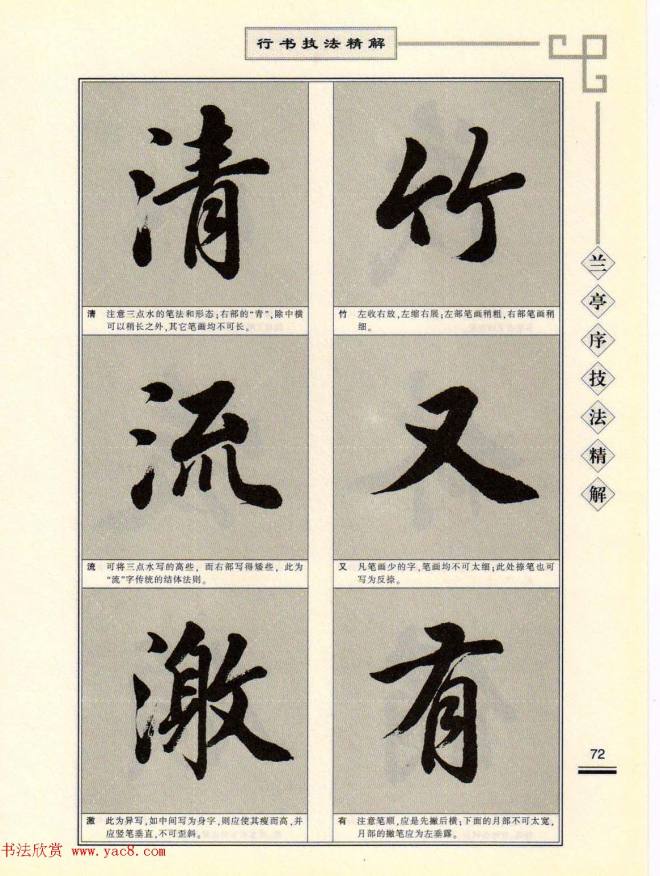 行书技法精解
兰亭序技法精解
竹
竹 左收右放,左缩右展;左部笔画稍粗,右部笔画稍
细。
又
又 凡笔画少的字,笔画均不可太细;此处捺笔也可
写为反捺。
有
有 注意笔顺,应是先撇后横;下面的月部不可太宽,
月部的撇笔应为左垂露。
清
清 注意三点水的笔法和形态;右部的“青”,除中横
可以稍长之外,其它笔画均不可长。
流
流 可将三点水写的高些,而右部写得矮些,此为
“流”字传统的结体法则。
激
激 此为异写,如中间写为身字,则应使其瘦而高,并
应竖笔垂直,不可歪斜。
72
书法欣赏 www.yac8.com